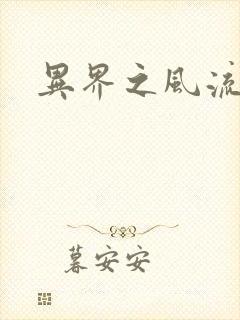 異界之風流
暮安安